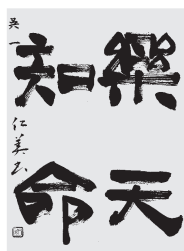 樂天
知命
仁美